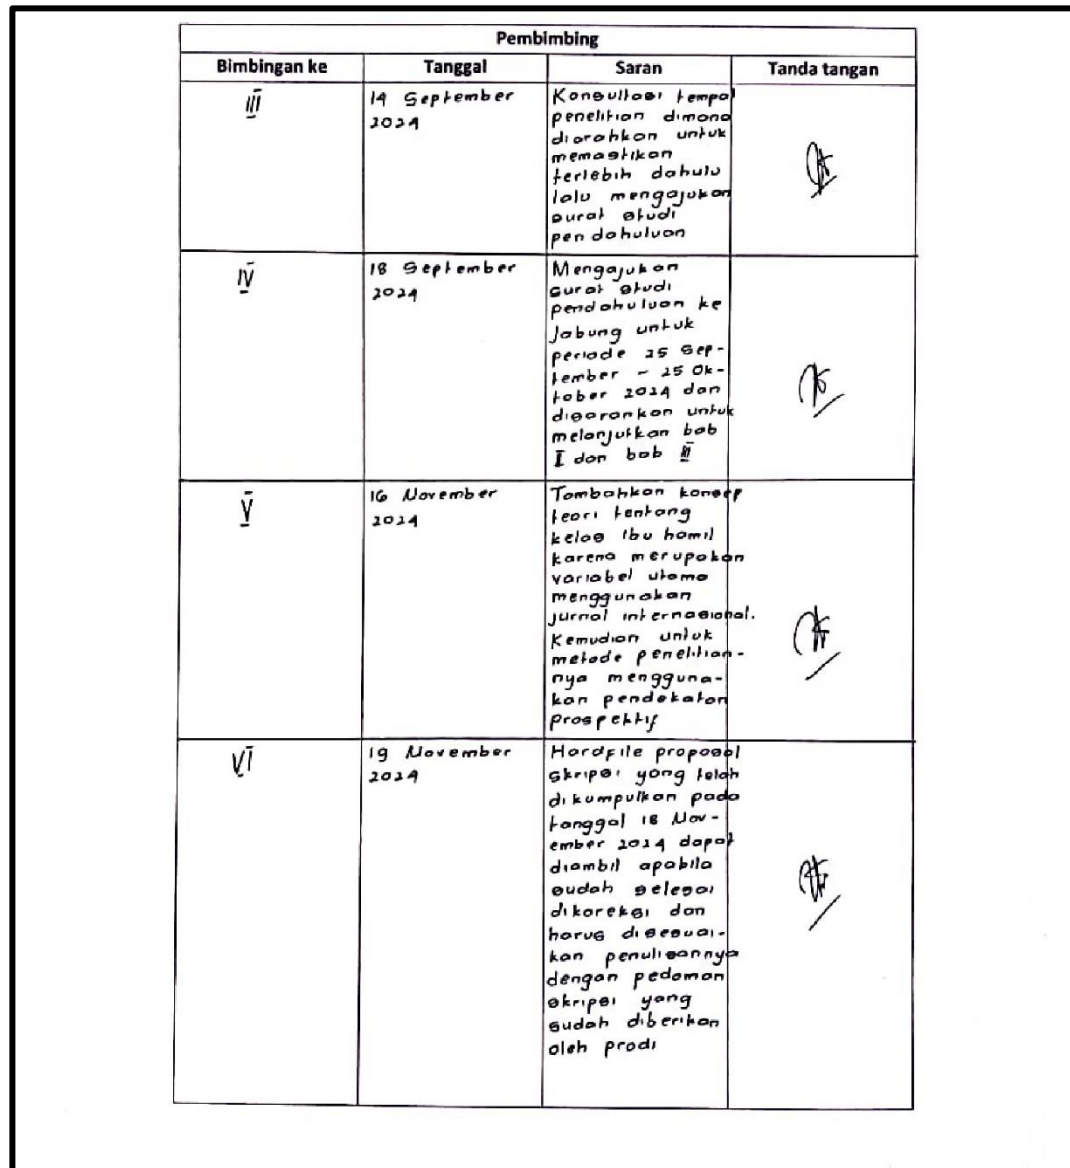 Pembimbing
Bimbingan ke Tanggal Saran Tanda tangan
III
14 September
2024
Konsultasi tempat
penelitian dimana
diarahkan untuk
memastikan
terlebih dahulu
lalu mengajukan
surat studi
pendahuluan
IV
18 September
2024
Mengajukan
surat studi
pendahuluan ke
Jabung untuk
periode 25 Sep-
tember - 25 Ok-
tober 2024 dan
disarankan untuk
melanjutkan bab
I dan bab III
V
16 November
2024
Tambahkan konsep
teori tentang
kelas ibu hamil
karena merupakan
variabel utama
menggunakan
jurnal internasional.
Kemudian untuk
metode penelitian-
nya mengguna-
kan pendekatan
prospektif
VI
19 November
2024
Hardfile proposal
skripsi yang telah
dikumpulkan pada
tanggal 18 Nov-
ember 2024 dapat
diambil apabila
sudah selesai
dikoreksi dan
harus disesuai-
kan penulisannya
dengan pedoman
skripsi yang
sudah diberikan
oleh prodi